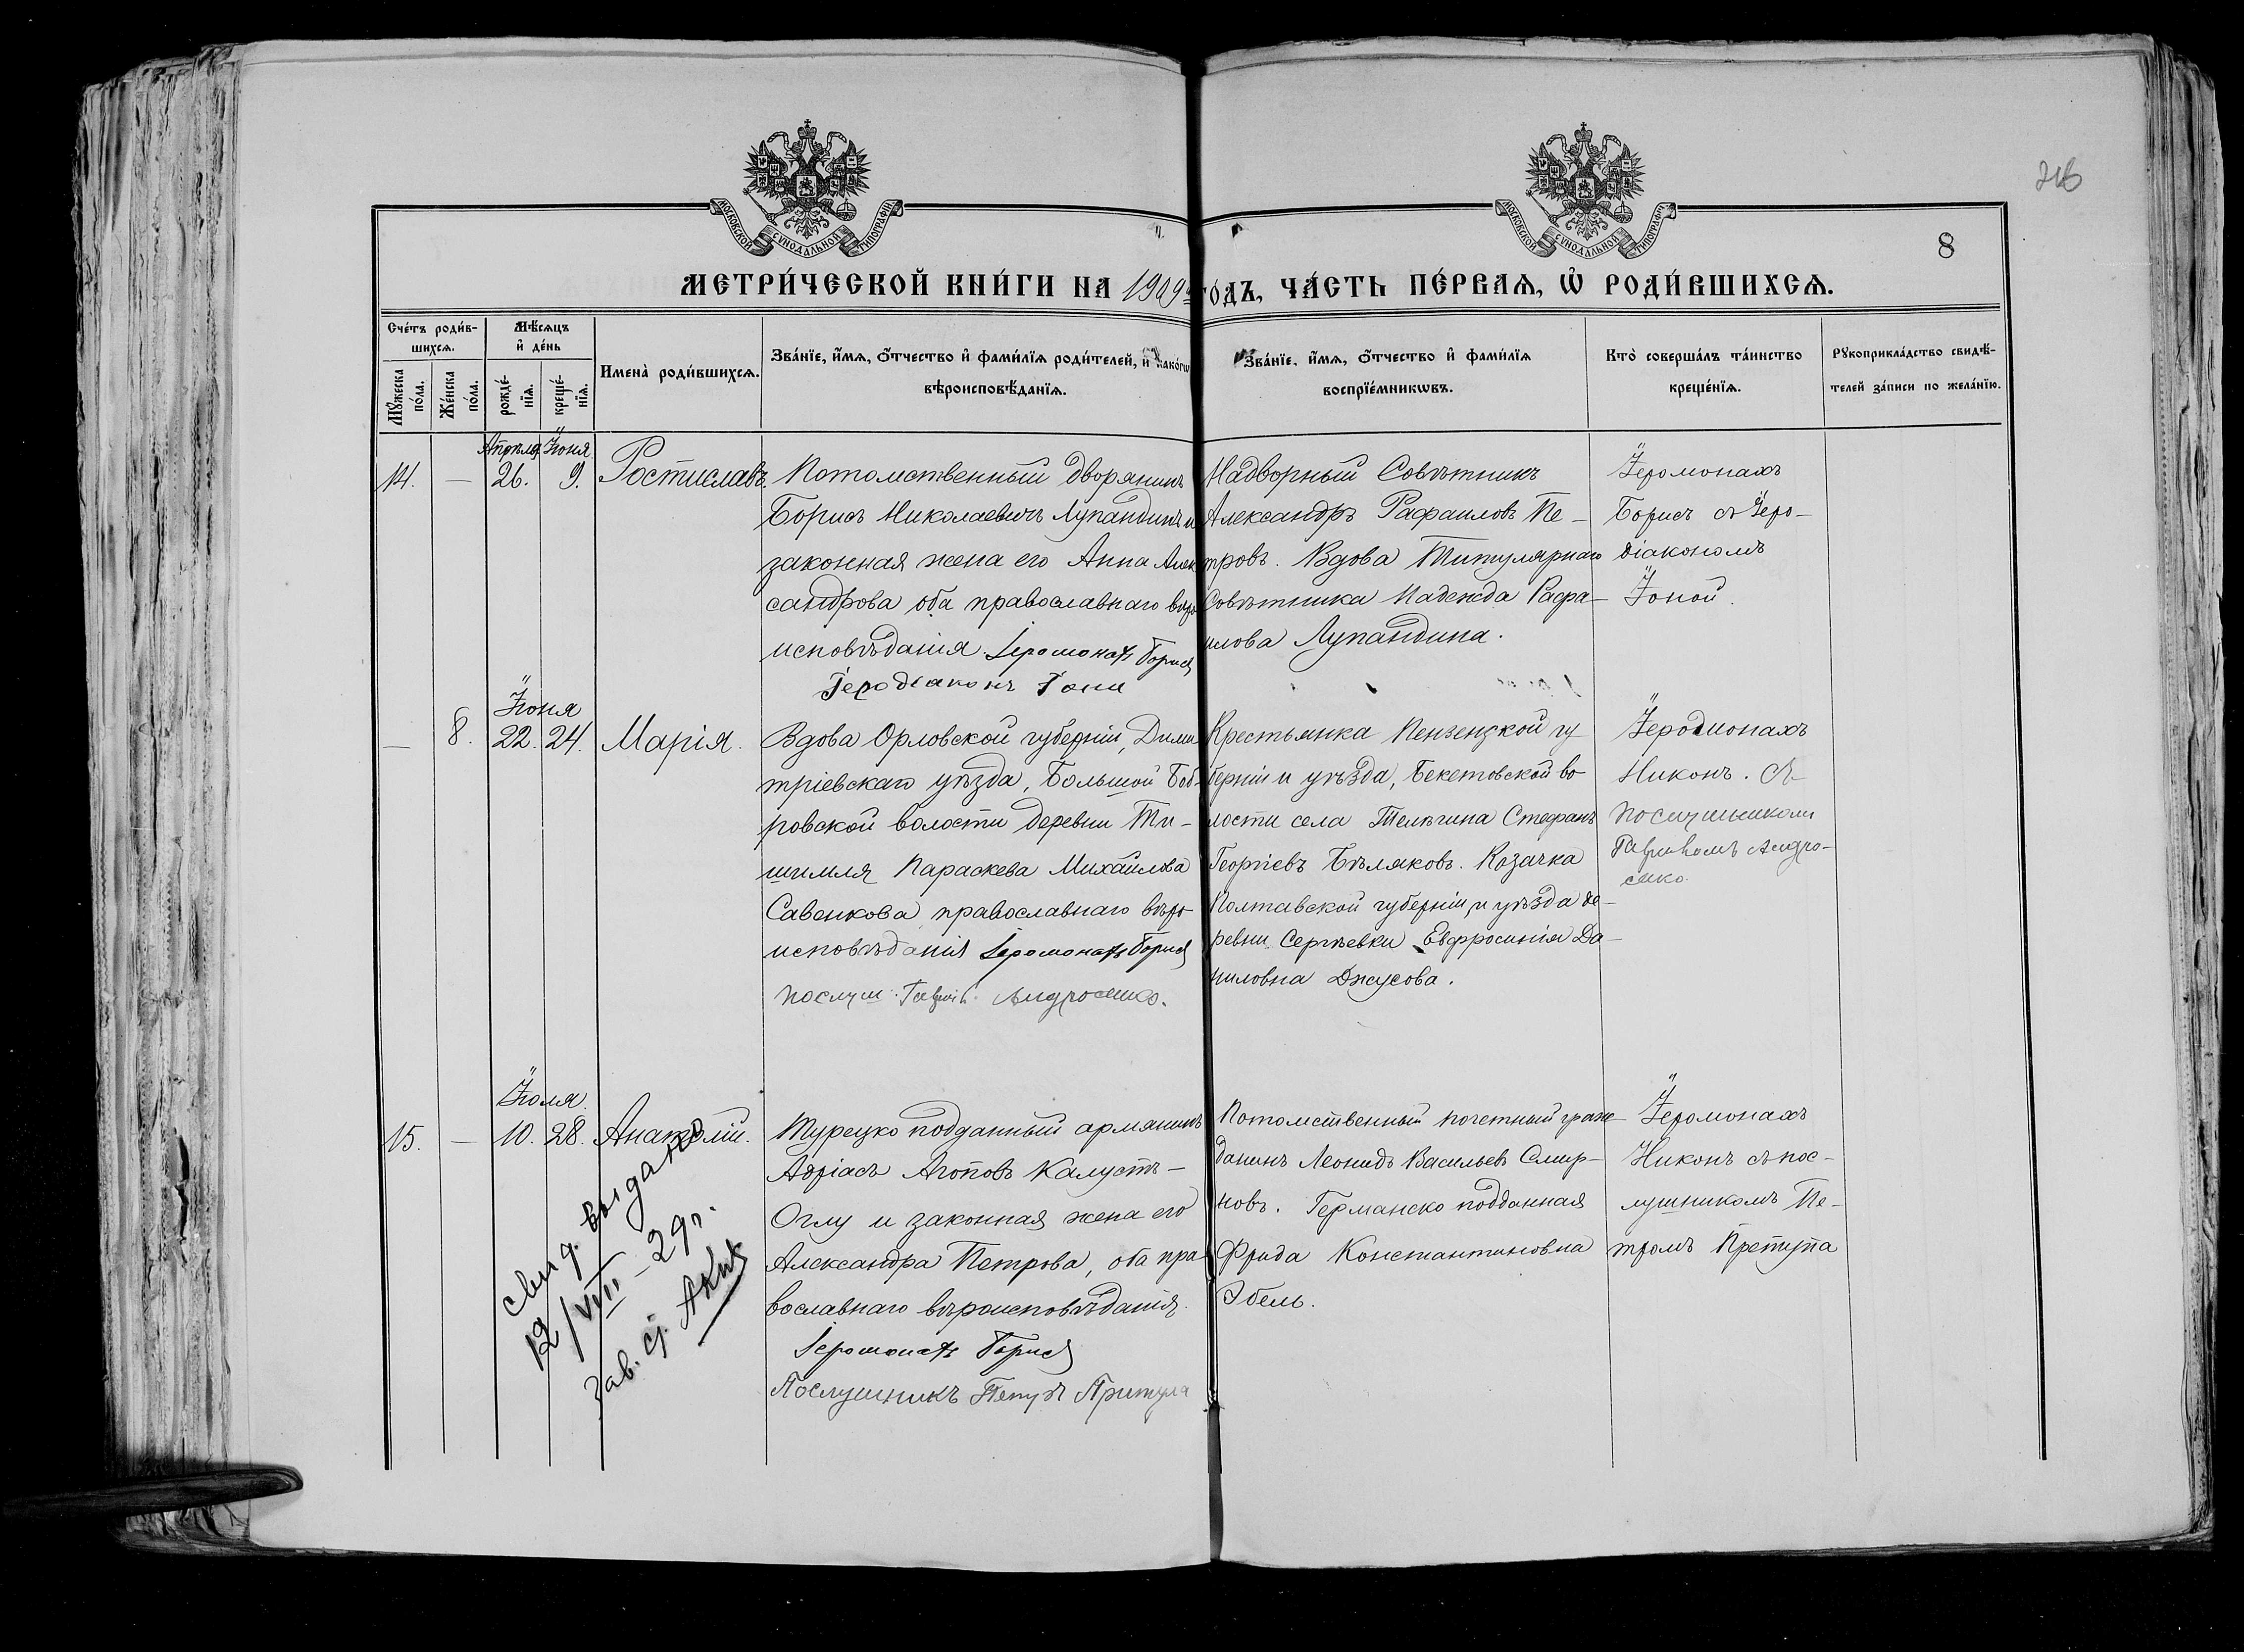 МОСКОВСКОЙ СУНОДАЛЬНОЙ ТИПОГРАФІИ
МОСКОВСКОЙ СУНОДАЛЬНОЙ ТИПОГРАФІИ
8
МЕТРИ́ЧЕСКОЙ КНИ́ГИ НА 1909й ГО́ДЪ, ЧА́СТЬ ПЕ́РВАѦ, Ѡ҆ РОДИ́ВШИХСѦ.
Сче́тъ роди́в-
шихсѧ.
Мꙋ́жеска по́ла.
Же́нска по́ла.
Мѣ́сѧцъ и҆ де́нь
рожде́-нїѧ.
креще́-нїѧ.
Имена̀ роди́вшихсѧ.
Зва́нїе, и҆́мѧ, ѻ҆́тчество и҆ фами́лїѧ роди́телей, и҆ како́гѡ
вѣроисповѣ́данїѧ.
Зва́нїе, и҆́мѧ, ѻ҆́тчество и҆ фами́лїѧ
воспрїе́мникѡвъ.
Кто̀ соверша́лъ та́инство
креще́нїѧ.
Рꙋкоприкла́дство свидѣ́-
телей за́писи по жела́нїю.
14. — Апрѣля 26. Іюня 9. Ростиславъ.
Потомственный дворянинъ
Борисъ Николаевичъ Лупандинъ и
законная жена его Анна Алек
сандрова оба православнаго вѣро
исповѣданія. Іеромонахъ Борисъ
Іеродіаконъ Іона
Надворный Совѣтникъ
Александръ Рафаиловъ Пе-
тровъ. Вдова Титулярнаго
Совѣтника Надежда Рафа-
илова Лупандина.
Іеромонахъ
Борисъ съ Іеро-
діакономъ
Іоной.
— 8. Іюня 22. 24. Марія.
Вдова Орловской губерніи, Дими
тріевскаго уѣзда, Большой Боб-
ровской волости деревни Ти-
шимля Параскева Михайлова
Савенкова православнаго вѣро-
исповѣданія Іеромонахъ Борисъ
послуш. Гавріи. Андросенко.
Крестьянка Пензенской гу
берніи и уѣзда, Бекетовской во
лости села Телѣгина Стефанъ
Георгіевъ Бѣляковъ. Козачка
Полтавской губерніи и уѣзда де-
ревни Сергѣевки Евфросинія Да-
ниловна Джусова.
Іеромонахъ
Никонъ. Съ
послушникомъ
Гавріиломъ Андро-
сенко.
15. — Іюля 10. 28. Анатолій.
Турецко подданный армянинъ
Агопъ Калустъ-
Оглу и законная жена его
Александра Петрова, оба пра
вославнаго вѣроисповѣданія.
Іеромонахъ Борисъ
Послушникъ Петръ Притула
Потомственный почетный граж-
данинъ Леонидъ Васильевъ Смир-
новъ. Германско подданная
Фрида Константиновна
Эбель.
Іеромонахъ
Никонъ съ пос-
лушникомъ Пе-
тромъ Притула
свид. выдано
12/VIII-29г.
Зав.